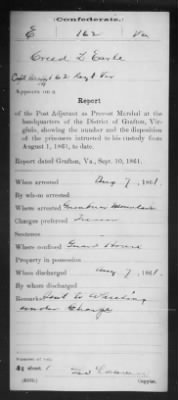 (Confederate.)
E 162 Va
Creed L. Earle
Capt 162 Regt Va
Appears on a
Report
of the Post Adjutant as Provost Marshal at the
headquarters of the District of Grafton, Vir-
ginia, showing the number and the disposition
of the prisoners intrusted to his custody from
August 1, 1861, to date.
Report dated Grafton, Va., Sept. 10, 1861.
When arrested Aug 7, 1861.
By whom arrested
Where arrested Mountain
Charges preferred Treason
Sentence
Where confined Guard House
Property in possession
When discharged Aug 7, 1861.
By whom discharged
Remarks: Sent to Wheeling
under charge
Number of roll:
sheet 1
Copyist.